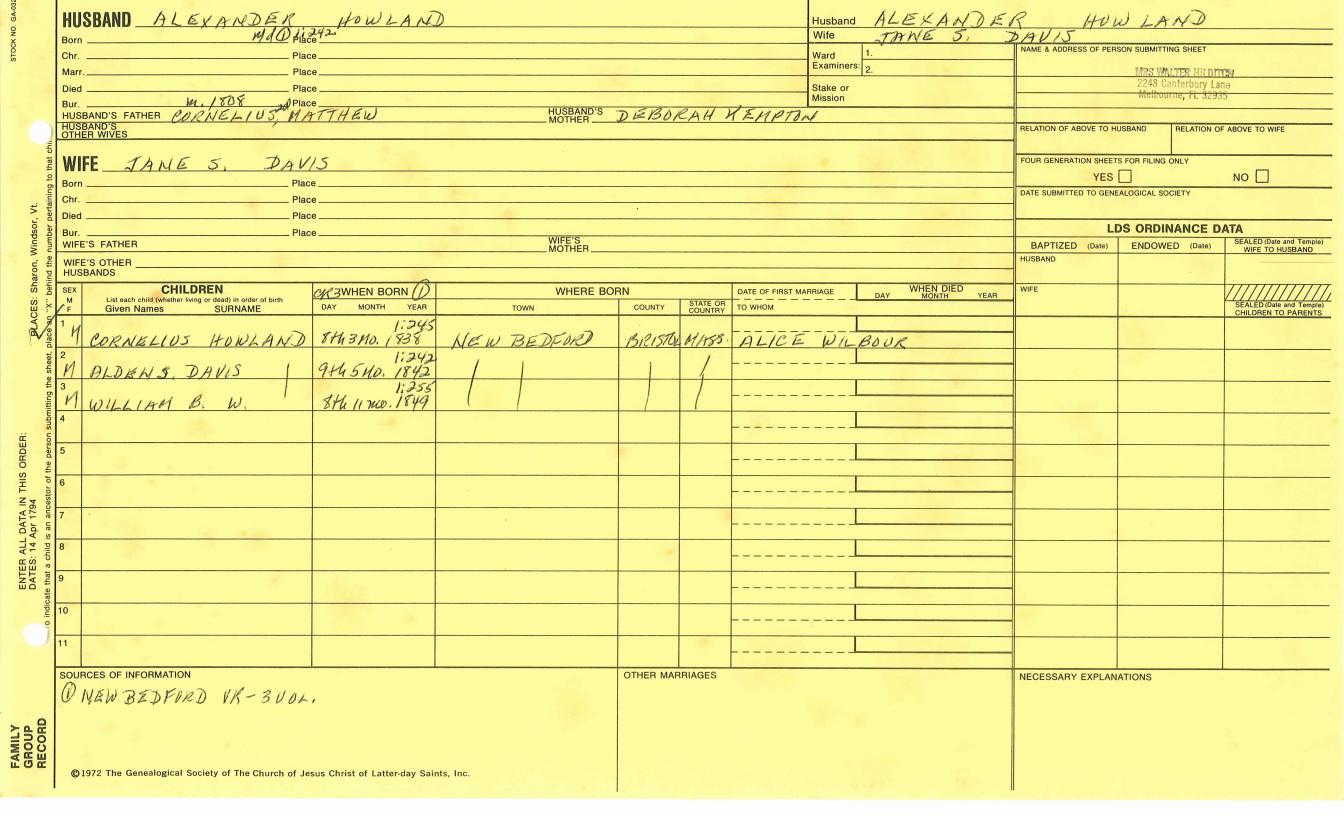 STOCK NO. GA-032
HUSBAND ALEXANDER HOWLAND
Born md ① 1:242 Place
Chr. Place
Marr. Place
Died Place
Bur. m. 1808 Place
HUSBAND'S FATHER CORNELIUS, MATTHEW HUSBAND'S MOTHER DEBORAH KEMPTON
HUSBAND'S OTHER WIVES
Husband ALEXANDER HOWLAND
Wife JANE S. DAVIS
Ward Examiners: 1.
2.
Stake or Mission
NAME & ADDRESS OF PERSON SUBMITTING SHEET
MRS WALTER HILDITCH
2248 Canterbury Lane
Melbourne, FL 32935
RELATION OF ABOVE TO HUSBAND RELATION OF ABOVE TO WIFE
FOUR GENERATION SHEETS FOR FILING ONLY
YES NO
DATE SUBMITTED TO GENEALOGICAL SOCIETY
WIFE JANE S. DAVIS
Born Place
Chr. Place
Died Place
Bur. Place
WIFE'S FATHER WIFE'S MOTHER
WIFE'S OTHER HUSBANDS
LDS ORDINANCE DATA
BAPTIZED (Date) ENDOWED (Date) SEALED (Date and Temple) WIFE TO HUSBAND
HUSBAND
WIFE
SEALED (Date and Temple) CHILDREN TO PARENTS
SEX M F CHILDREN CR3 WHEN BORN ① WHERE BORN DATE OF FIRST MARRIAGE WHEN DIED
List each child (whether living or dead) in order of birth
Given Names SURNAME DAY MONTH YEAR TOWN COUNTY STATE OR COUNTRY TO WHOM DAY MONTH YEAR
1 1:245
M CORNELIUS HOWLAND 8th 3mo. 1838 NEW BEDFORD BRISTOL MASS. ALICE WILBOUR
2 1:242
M ALDEN S. DAVIS 9th 5mo. 1842
3 1:255
M WILLIAM B. W. 8th 11mo. 1849
4
5
6
7
8
9
10
11
SOURCES OF INFORMATION OTHER MARRIAGES NECESSARY EXPLANATIONS
① NEW BEDFORD VR-3VOL.
©1972 The Genealogical Society of The Church of Jesus Christ of Latter-day Saints, Inc.
FAMILY GROUP RECORD
ENTER ALL DATA IN THIS ORDER:
DATES: 14 Apr 1794
PLACES: Sharon, Windsor, Vt.
to indicate that a child is an ancestor of the person submitting the sheet, place an "X" behind the number pertaining to that